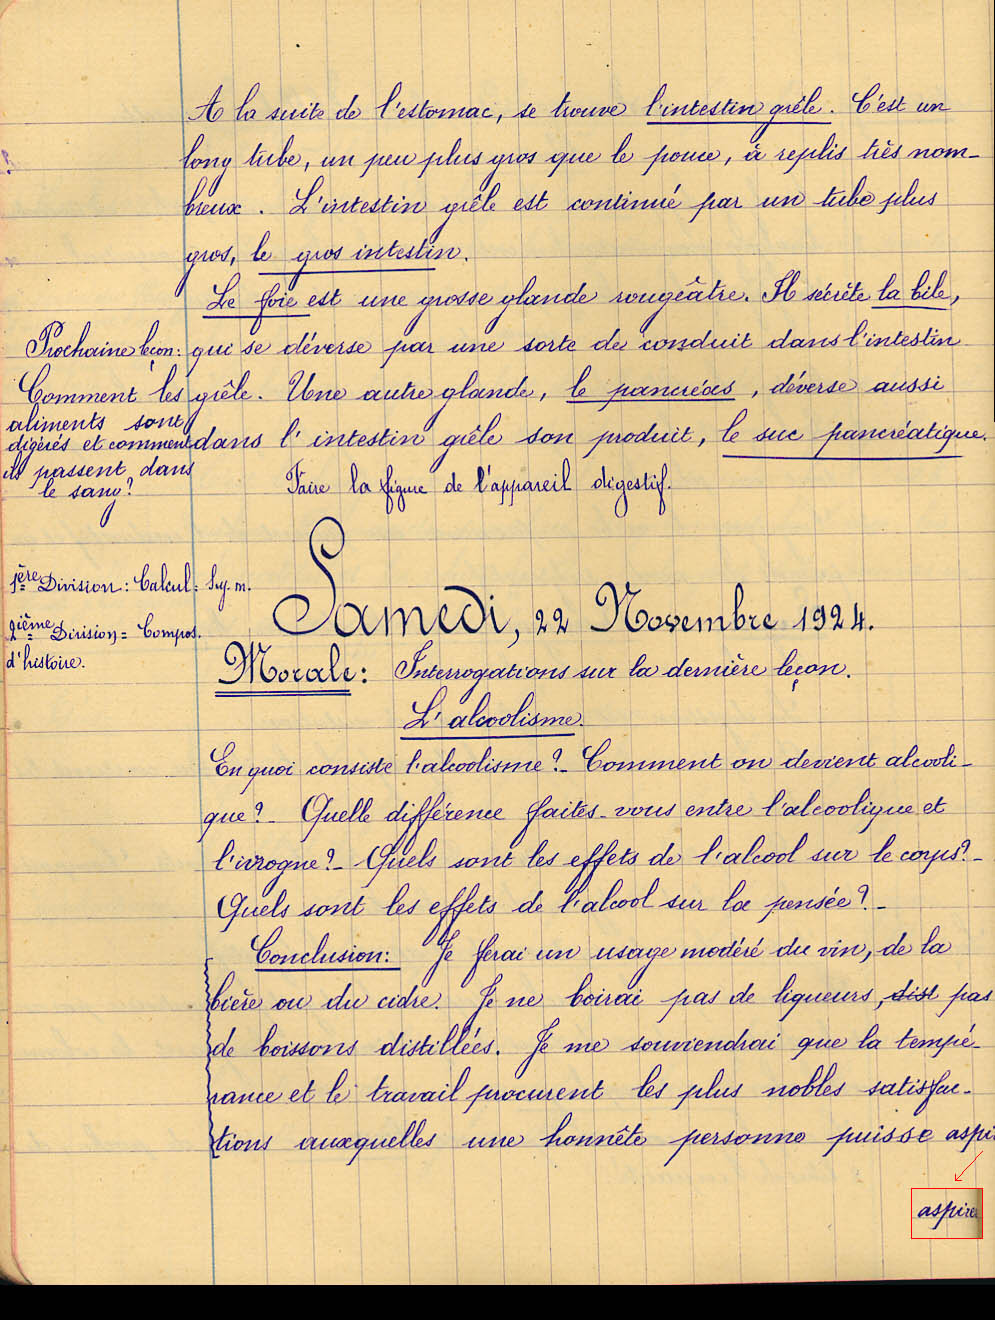 A la suite de l'estomac, se trouve l'intestin grêle. C'est un
long tube, un peu plus gros que le pouce, à replis très nom-
breux. L'intestin grêle est continué par un tube plus
gros, le gros intestin.
Le foie est une grosse glande rougeâtre. Il sécrète la bile,
qui se déverse par une sorte de conduit dans l'intestin
grêle. Une autre glande, le pancréas, déverse aussi
dans l'intestin grêle son produit, le suc pancréatique.
Prochaine leçon:
Comment les
aliments sont
digérés et comment
ils passent dans
le sang?
Faire la figure de l'appareil digestif.
1ère Division: Calcul: Sy. m.
2ième Division = Compos.
d'histoire.
Samedi, 22 Novembre 1924.
Morale: Interrogations sur la dernière leçon.
L'alcoolisme.
En quoi consiste l'alcoolisme?- Comment on devient alcooli-
que?- Quelle différence faites-vous entre l'alcoolique et
l'ivrogne?- Quels sont les effets de l'alcool sur le corps?-
Quels sont les effets de l'alcool sur la pensée?-
Conclusion: Je ferai un usage modéré du vin, de la
bière ou du cidre. Je ne boirai pas de liqueurs, dist pas
de boissons distillées. Je me souviendrai que la tempé-
rance et le travail procurent les plus nobles satisfac-
tions auxquelles une honnête personne puisse aspi
aspirer